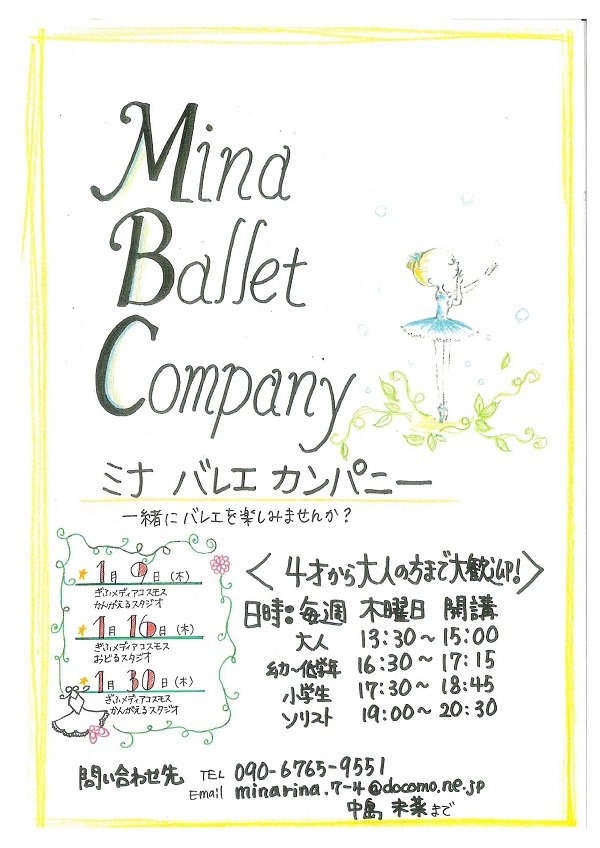 Mina
Ballet
Company
ミナ バレエ カンパニー
一緒にバレエを楽しみませんか？
1月9日（木）
ぎふメディアコスモス
かんがえるスタジオ
1月16日（木）
ぎふメディアコスモス
おどるスタジオ
1月30日（木）
ぎふメディアコスモス
かんがえるスタジオ
〈 4才から大人の方まで大歓迎！〉
日時：毎週 木曜日 開講
大人 13:30～15:00
幼～低学年 16:30～17:15
小学生 17:30～18:45
ソリスト 19:00～20:30
問い合わせ先 TEL 090-6765-9551
Email minarina.7-4@docomo.ne.jp
中島 未薬まで